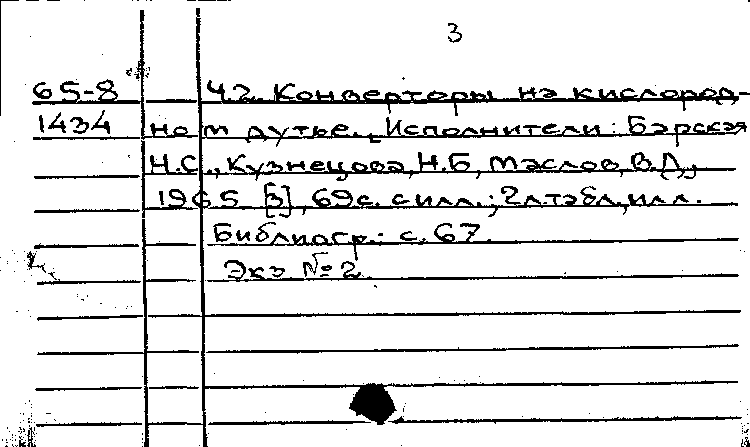 3
65-8 Ч.2. Конверторы на кислород-
1434 ном дутье. Исполнители: Барская
Н.С., Кузнецова, Н.Б, Маслов, В.Д.,
1965 [3], 69с. с илл.; 2л.табл., илл.
Библиогр.: с. 67.
Экз №2.